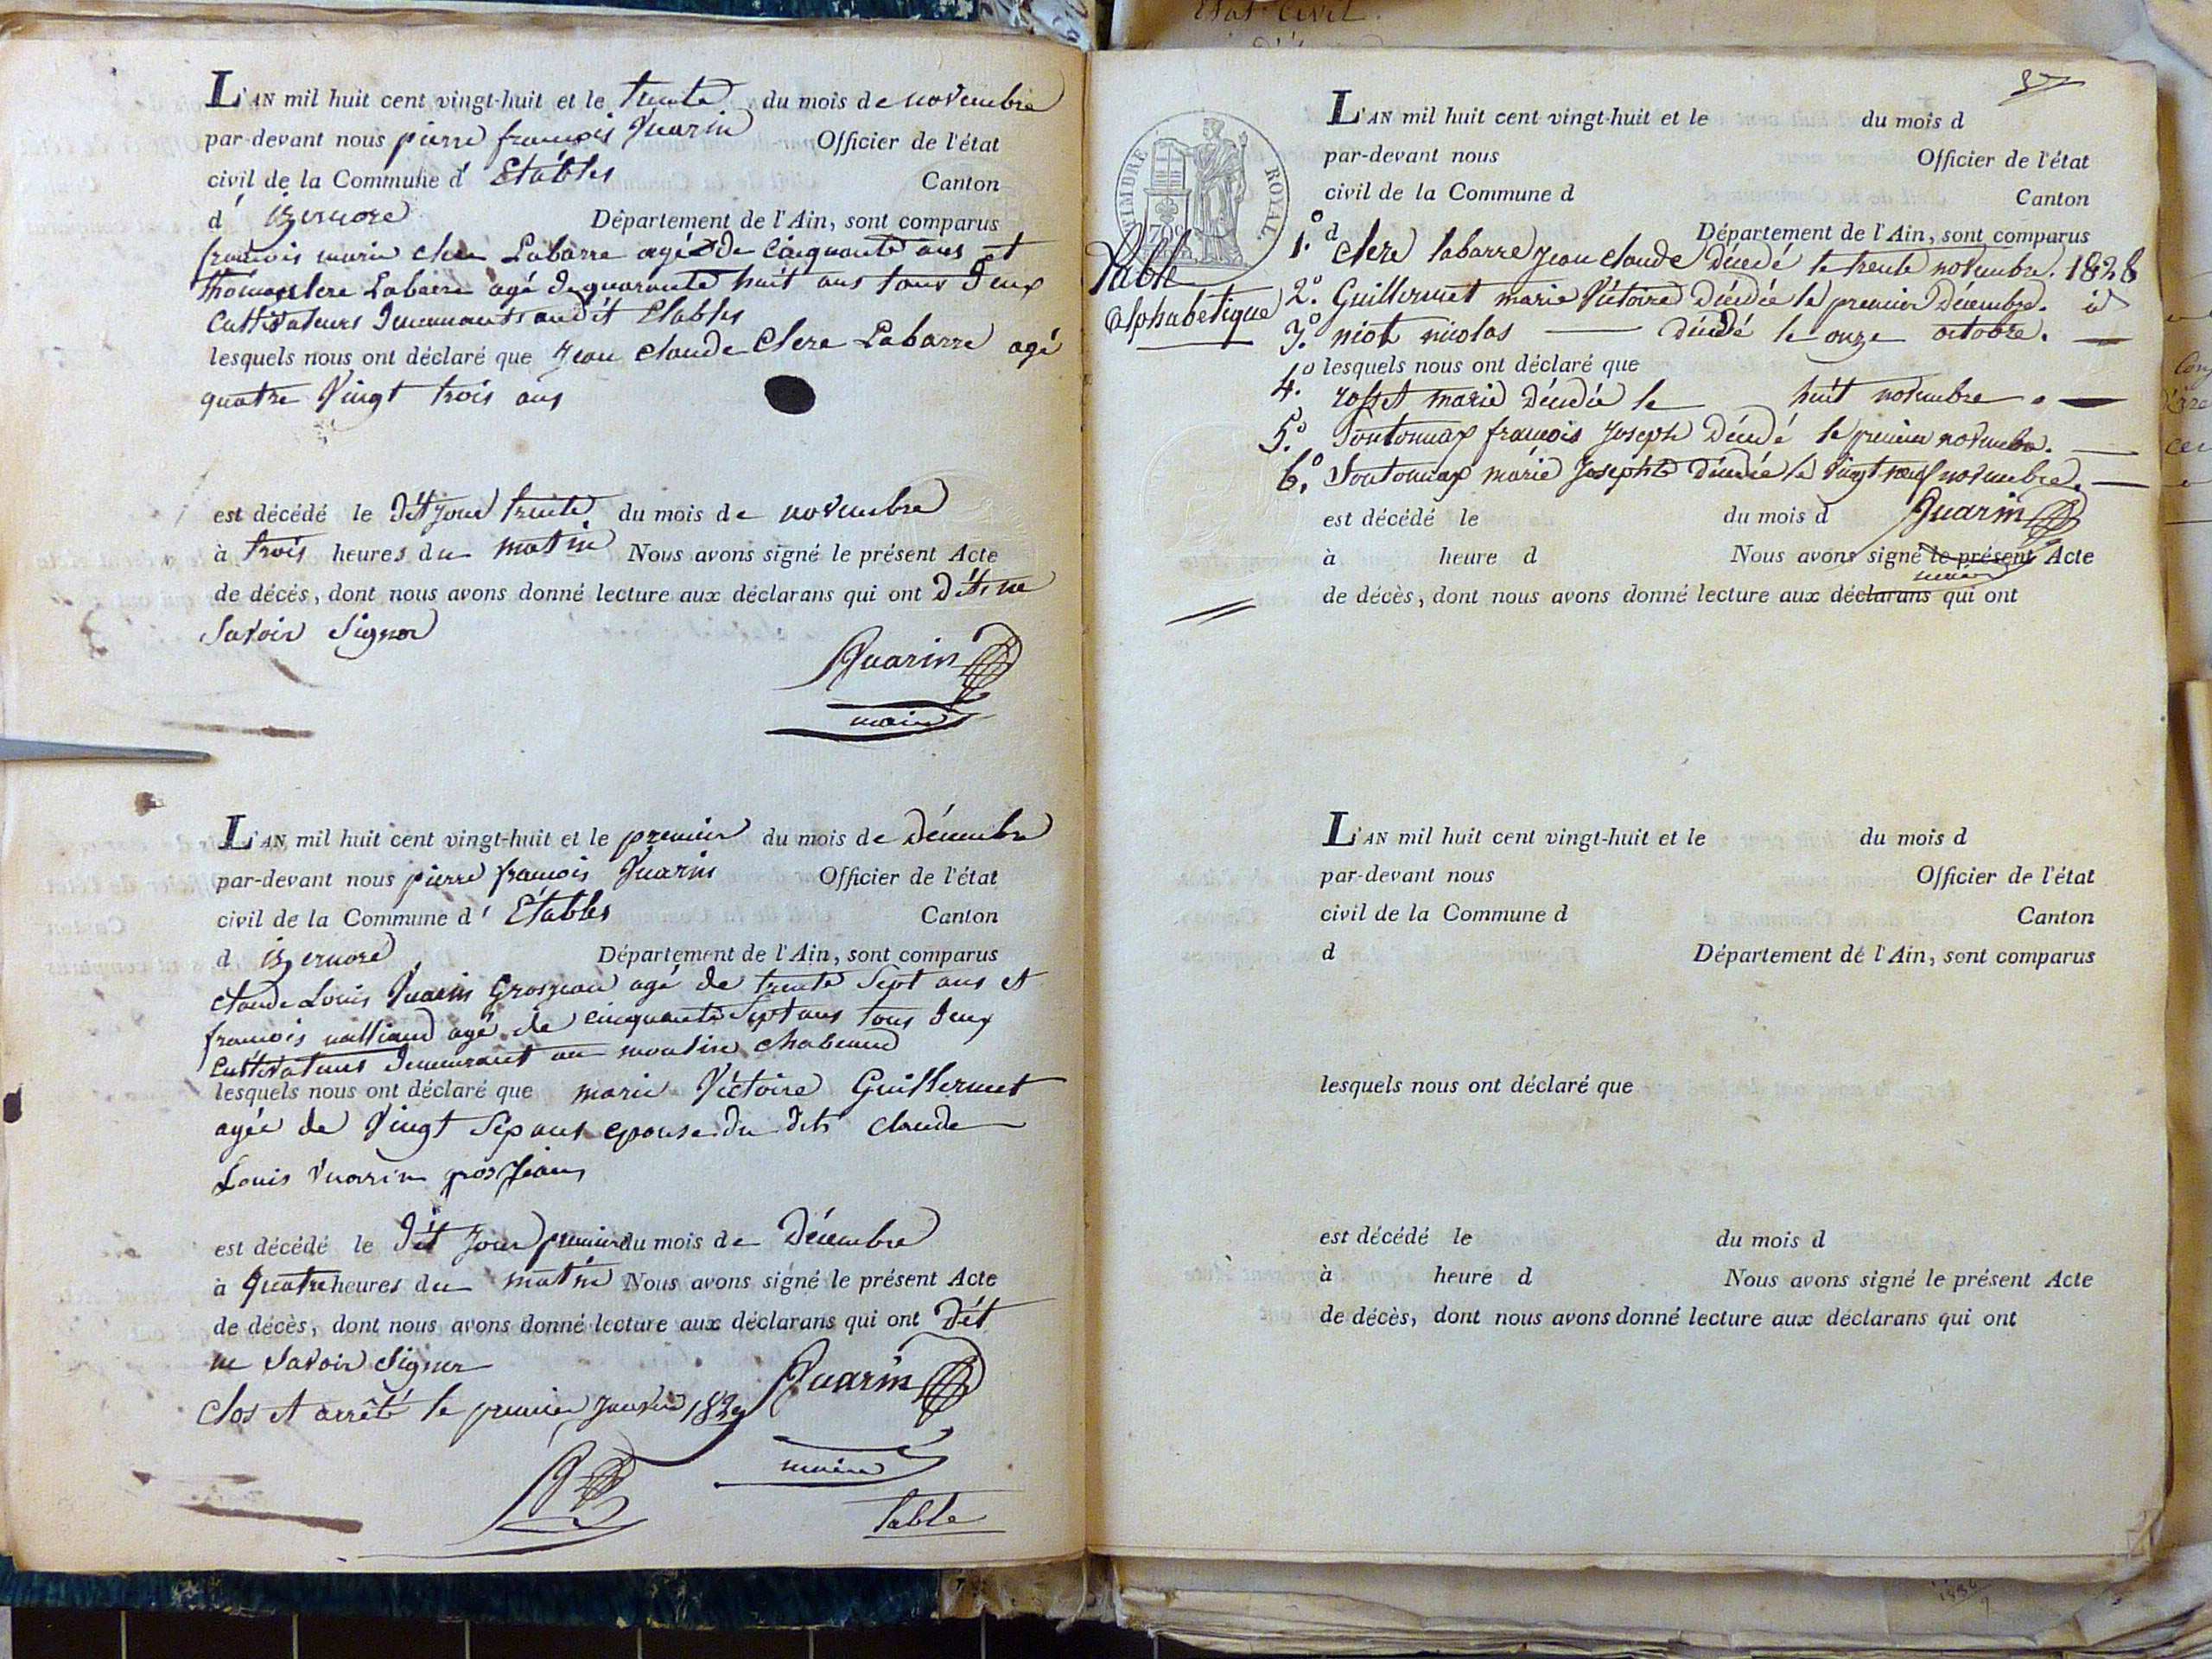 L'AN mil huit cent vingt-huit et le trente du mois de novembre
par-devant nous pierre françois Vuarin Officier de l'état
civil de la Commune d' Etables Canton
d' izernore Département de l'Ain, sont comparus
françois marie clere Labarre agé de cinquante ans et
thomas clere Labarre agé de quarante huit ans tous deux
cultivateurs demeurants audit Etables
lesquels nous ont déclaré que jean claude clere Labarre agé
quatre vingt trois ans
est décédé le dit jour trente du mois de novembre
à trois heures du matin Nous avons signé le présent Acte
de décès, dont nous avons donné lecture aux déclarans qui ont dit ne
savoir signer
Vuarin
maire
L'AN mil huit cent vingt-huit et le premier du mois de décembre
par-devant nous pierre françois Vuarin Officier de l'état
civil de la Commune d' Etables Canton
d izernore Département de l'Ain, sont comparus
claude Louis Vuarin Grosjean agé de trente sept ans et
françois nalliand agé de cinquante sept ans tous deux
cultivateurs demeurant au moulin chabaud
lesquels nous ont déclaré que marie Victoire Guillermet
agée de vingt sep ans epouse du dit claude
Louis vuarin grosjean
est décédé le dit jour premier du mois de décembre
à quatre heures du matin Nous avons signé le présent Acte
de décès, dont nous avons donné lecture aux déclarans qui ont dit
ne savoir signer
Vuarin
Clos et arrêté le premier janvier 1829
maire
Table
Etat Civil.
37
L'AN mil huit cent vingt-huit et le du mois d
par-devant nous Officier de l'état
civil de la Commune d Canton
TIMBRE ROYAL.
d Département de l'Ain, sont comparus
Table
alphabetique
1.° clere labarre jean claude décédé le trente novembre. 1828
2.° Guillermet marie Victoire décédée le premier décembre. id
3.° niot nicolas décédé le onze octobre.
lesquels nous ont déclaré que
4.° rosset marie décédée le huit novembre
5.° Toutonnax françois joseph décédé le premier novembre.
6.° Toutonnax marie josephte décédée le vingt neuf novembre.
Vuarin
est décédé le du mois d
à heure d Nous avons signé le présent Acte
maire
de décès, dont nous avons donné lecture aux déclarans qui ont
L'AN mil huit cent vingt-huit et le du mois d
par-devant nous Officier de l'état
civil de la Commune d Canton
d Département de l'Ain, sont comparus
lesquels nous ont déclaré que
est décédé le du mois d
à heure d Nous avons signé le présent Acte
de décès, dont nous avons donné lecture aux déclarans qui ont